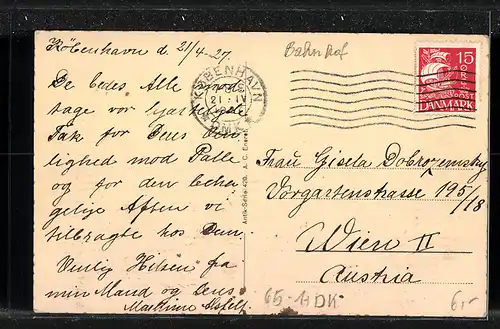 København d 21/4-27.
De bedes Alle mod-
tage vor hjertelige
Tak for Deres Ven-
lighed mod Palle
og for den beha-
gelige Aften vi
tilbragte hos Dem.
Venlig Hilsen fra
min Mand og Deres
Bahnhof
KØBENHAVN
21-IV
15
ØRE
POST
DANMARK
Antik-Serie 420. A. C.
Frau Gisela Dobrozemsky
Vorgartenstrasse 195/18
Wien II
Austria
65-1HDK
6,-